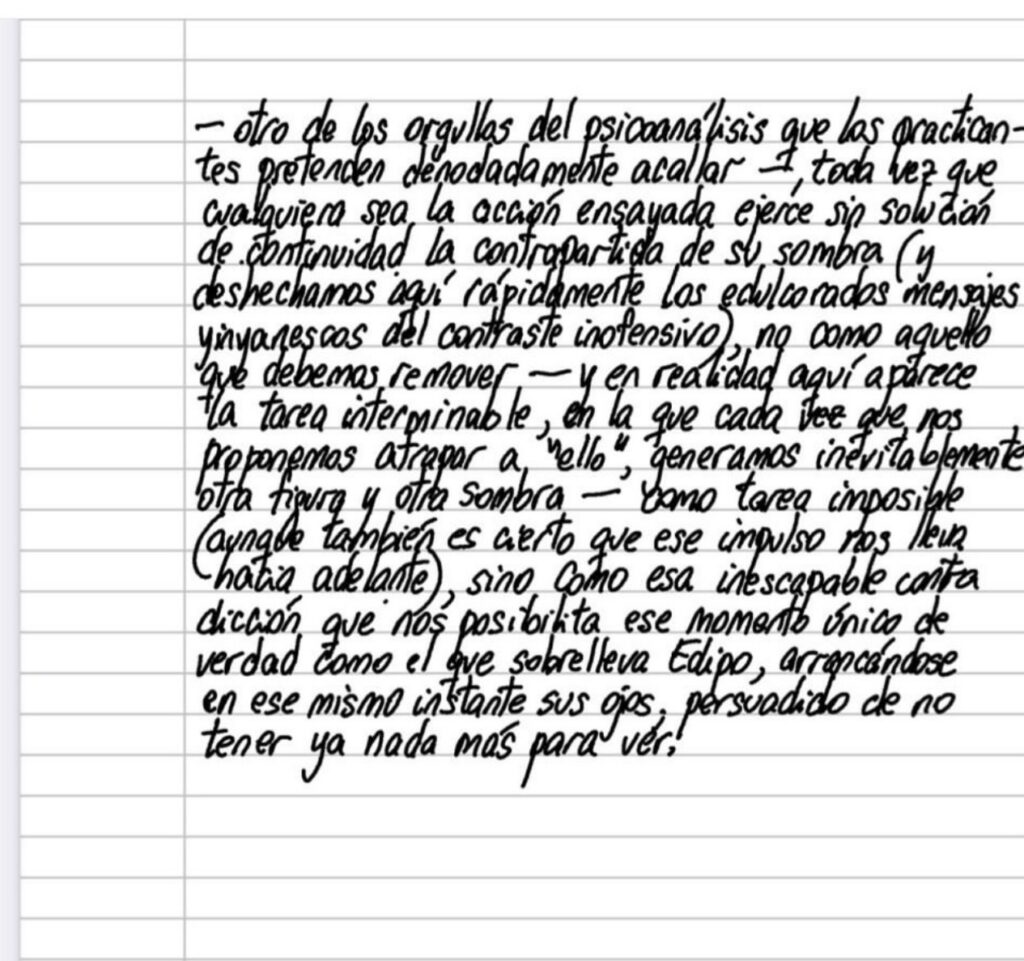 — otro de los orgullos del psicoanálisis que los practican-
tes pretenden denodadamente acallar —, toda vez que
cualquiera sea la acción ensayada ejerce sin solución
de continuidad la contrapartida de su sombra (y
deshechamos aquí rápidamente los edulcorados mensajes
yinyanescos del contraste inofensivo), no como aquello
que debemos remover — y en realidad aquí aparece
la tarea interminable, en la que cada vez que nos
proponemos atrapar a "ello", generamos inevitablemente
otra figura y otra sombra — como tarea imposible
(aunque también es cierto que ese impulso nos lleva
hacia adelante), sino como esa inescapable contra
dicción que nos posibilita ese momento único de
verdad como el que sobrelleva Edipo, arrancándose
en ese mismo instante sus ojos, persuadido de no
tener ya nada más para ver.